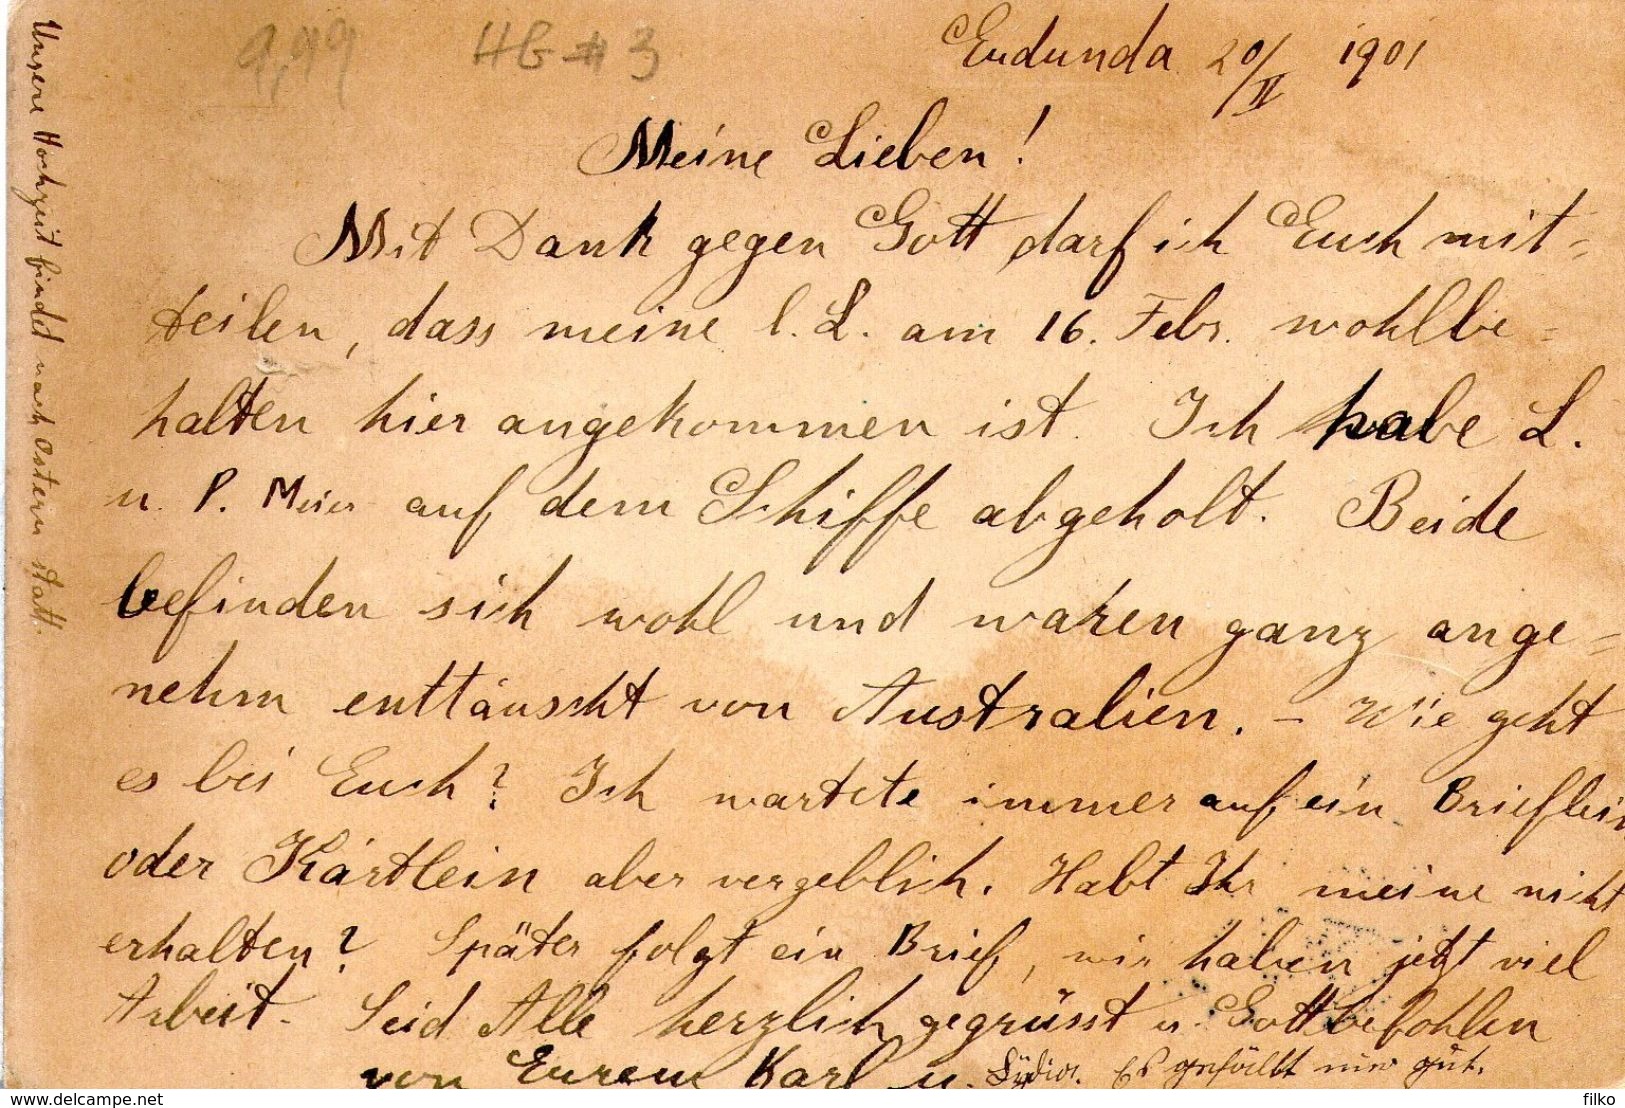 9,99 HG # 3
Eudunda 20/II 1901
Meine Lieben!
Mit Dank gegen Gott darf ich Euch mit=
teilen, dass meine l. L. am 16. Febr. wohlbe=
halten hier angekommen ist. Ich habe L.
u. P. Meier auf dem Schiffe abgeholt. Beide
befinden sich wohl und waren ganz ange=
nehm enttäuscht von Australien. – Wie geht
es bei Euch? Ich wartete immer auf ein Brieflein
oder Kärtlein aber vergeblich. Habt Ihr meine nicht
erhalten? Später folgt ein Brief, wir haben jetzt viel
Arbeit. Seid Alle herzlich gegrüsst u. Gottbefohlen
von Eurem Karl u. Lydia. Es gefällt mir gut.
Unsere Hochzeit findet nach Ostern statt.
www.delcampe.net
filko